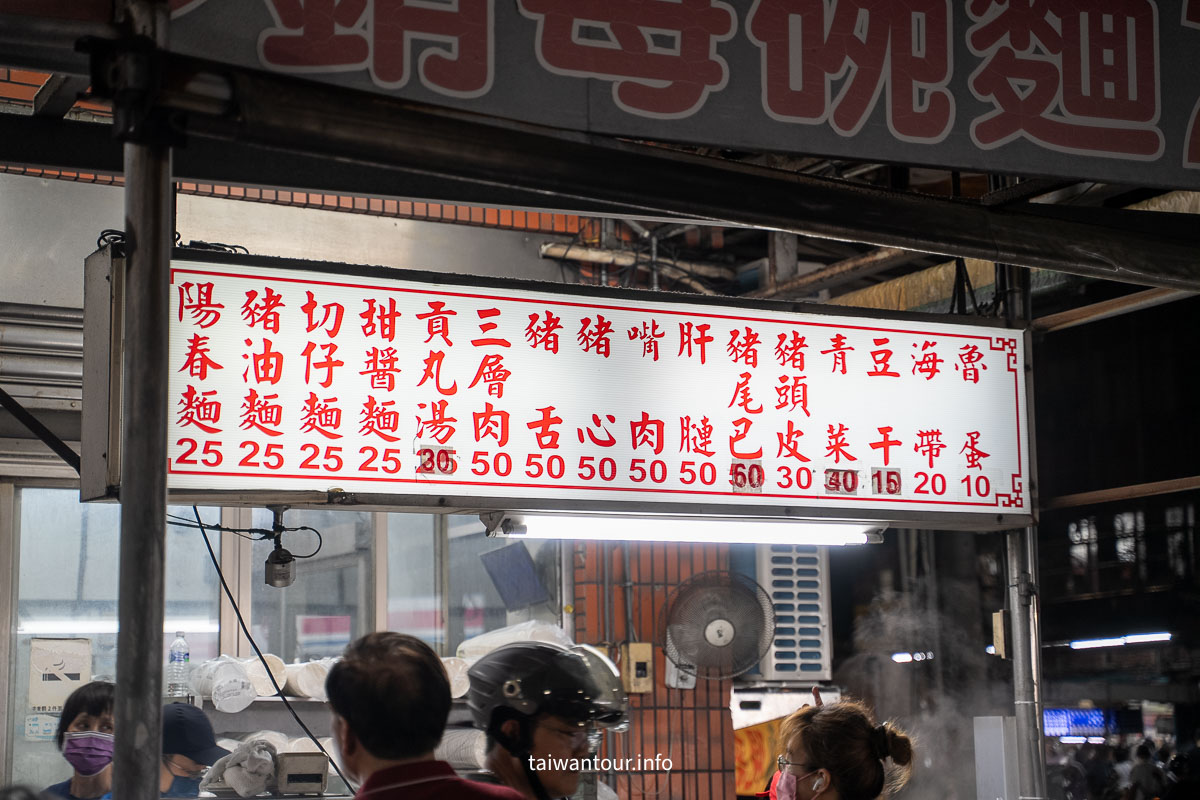 每碗麵
陽春麵25
豬油麵25
切仔麵25
甜醬麵25
貢丸湯30
三層肉50
豬舌50
豬心50
嘴肉50
肝 50
豬尾巴60
豬頭皮30
青菜40
豆干15
海帶20
魯蛋10
taiwantour.info